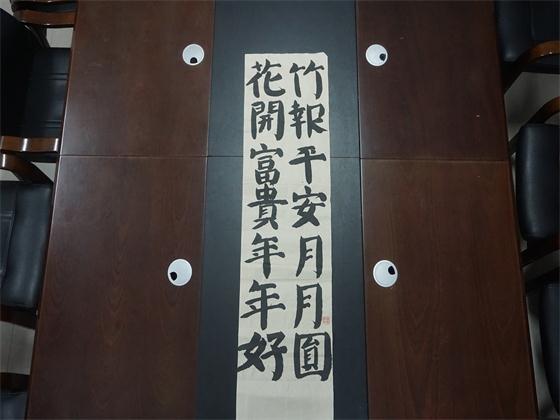 竹報平安月月圓
花開富貴年年好